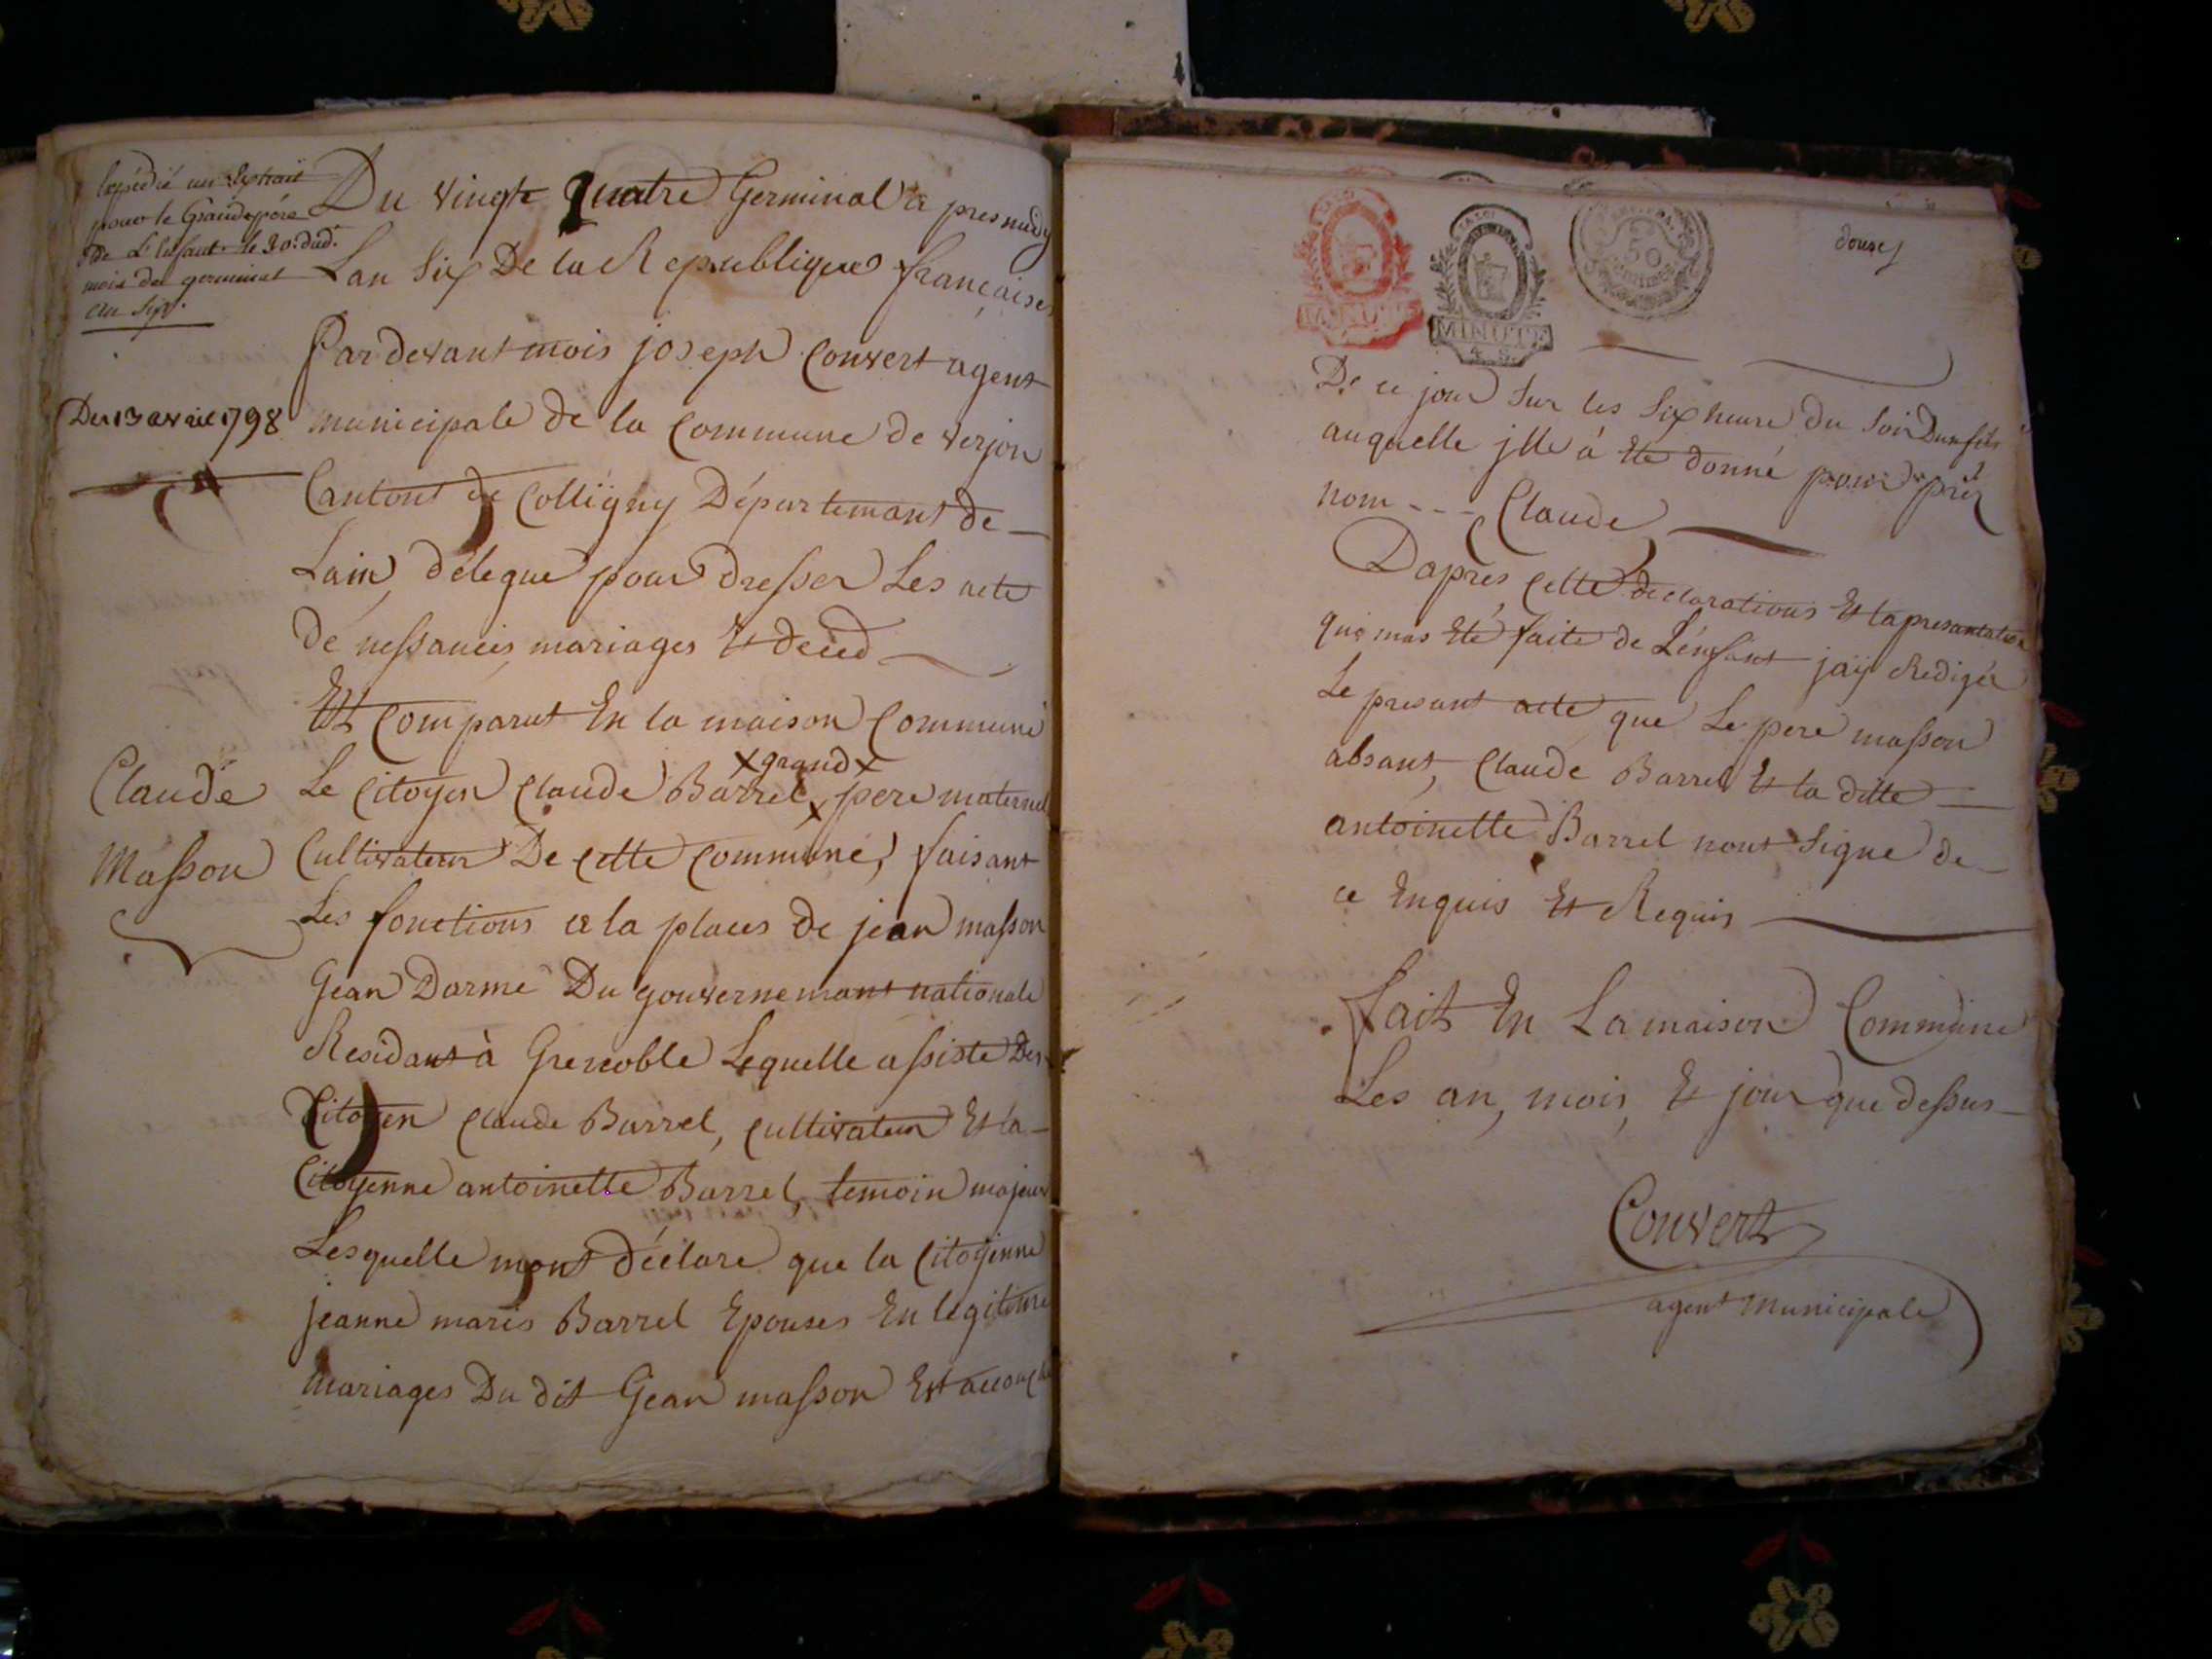 Expédié un Extrait
pour le Grandpère
de L'Enfant le 30. dud.
mois de germinal
an Six.
Du 13 avril 1798
Claude
Masson
Du vingt quatre Germinal a pres midy
Lan Six De la Republique françaises
Par devant mois joseph Convert agent
municipale de la Commune de verjon
Cantont de Colligny Département de
Lain, délegué pour dresser Les acte
de nessances, mariages Et deced
Est Comparut En la maison Commune
xgrandx
Le Citoyen Claude Barrel x pere maternel
Cultivateur De Cette Commune, faisant
Les fonctions a la places de jean masson
Gean Darme Du gouvernemant nationale
Residant à Grenoble Lequelle assiste Des
Citoyen Claude Barrel, Cultivateur Et la
Citoyenne antoinette Barrel, temoin majeur
Lesquelle mont déclare que la Citoyenne
jeanne maris Barrel Epouses En legitime
mariages Du dit Gean masson Est accouché
LA LOI
MINUTE
LA LOI
MINUTE
4 S.
50
CENTIMES
douze
De ce jour Sur les Six heure Du Soir Dun fils
auquelle jlle à Eté donné pour pré
nom - - - Claude
Dapres Cette declarations Et la presantation
qui mas Eté faite de L'énfant jaÿ Rediger
Le presant acte que Le pere masson
absant, Claude Barrel Et la ditte
antoinette Barrel nont Signe de
ce Enquis Et Requis
fait En La maison Commune
Les an, mois, Et jour que dessus
Convert
agent municipale